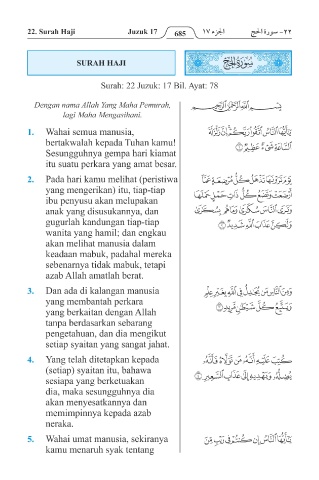 22. Surah Haji Juzuk 17 685 ٢٢- سورة الحج الجزء ١٧
SURAH HAJI سورة الحج
Surah: 22 Juzuk: 17 Bil. Ayat: 78
Dengan nama Allah Yang Maha Pemurah,
lagi Maha Mengasihani.
بسم الله الرحمن الرحيم
1. Wahai semua manusia,
bertakwalah kepada Tuhan kamu!
Sesungguhnya gempa hari kiamat
itu suatu perkara yang amat besar.
يَٰٓأَيُّهَا ٱلنَّاسُ ٱتَّقُوا۟ رَبَّكُمْ إِنَّ زَلْزَلَةَ
ٱلسَّاعَةِ شَىْءٌ عَظِيمٌ ١
2. Pada hari kamu melihat (peristiwa
yang mengerikan) itu, tiap-tiap
ibu penyusu akan melupakan
anak yang disusukannya, dan
gugurlah kandungan tiap-tiap
wanita yang hamil; dan engkau
akan melihat manusia dalam
keadaan mabuk, padahal mereka
sebenarnya tidak mabuk, tetapi
azab Allah amatlah berat.
يَوْمَ تَرَوْنَهَا تَذْهَلُ كُلُّ مُرْضِعَةٍ عَمَّآ
أَرْضَعَتْ وَتَضَعُ كُلُّ ذَاتِ حَمْلٍ حَمْلَهَا
وَتَرَى ٱلنَّاسَ سُكَٰرَىٰ وَمَا هُم بِسُكَٰرَىٰ
وَلَٰكِنَّ عَذَابَ ٱللَّهِ شَدِيدٌ ٢
3. Dan ada di kalangan manusia
yang membantah perkara
yang berkaitan dengan Allah
tanpa berdasarkan sebarang
pengetahuan, dan dia mengikut
setiap syaitan yang sangat jahat.
وَمِنَ ٱلنَّاسِ مَن يُجَٰدِلُ فِى ٱللَّهِ بِغَيْرِ عِلْمٍ
وَيَتَّبِعُ كُلَّ شَيْطَٰنٍ مَّرِيدٍ ٣
4. Yang telah ditetapkan kepada
(setiap) syaitan itu, bahawa
sesiapa yang berketuakan
dia, maka sesungguhnya dia
akan menyesatkannya dan
memimpinnya kepada azab
neraka.
كُتِبَ عَلَيْهِ أَنَّهُۥ مَن تَوَلَّاهُ فَأَنَّهُۥ
يُضِلُّهُۥ وَيَهْدِيهِ إِلَىٰ عَذَابِ ٱلسَّعِيرِ ٤
5. Wahai umat manusia, sekiranya
kamu menaruh syak tentang
يَٰٓأَيُّهَا ٱلنَّاسُ إِن كُنتُمْ فِى رَيْبٍ مِّنَ